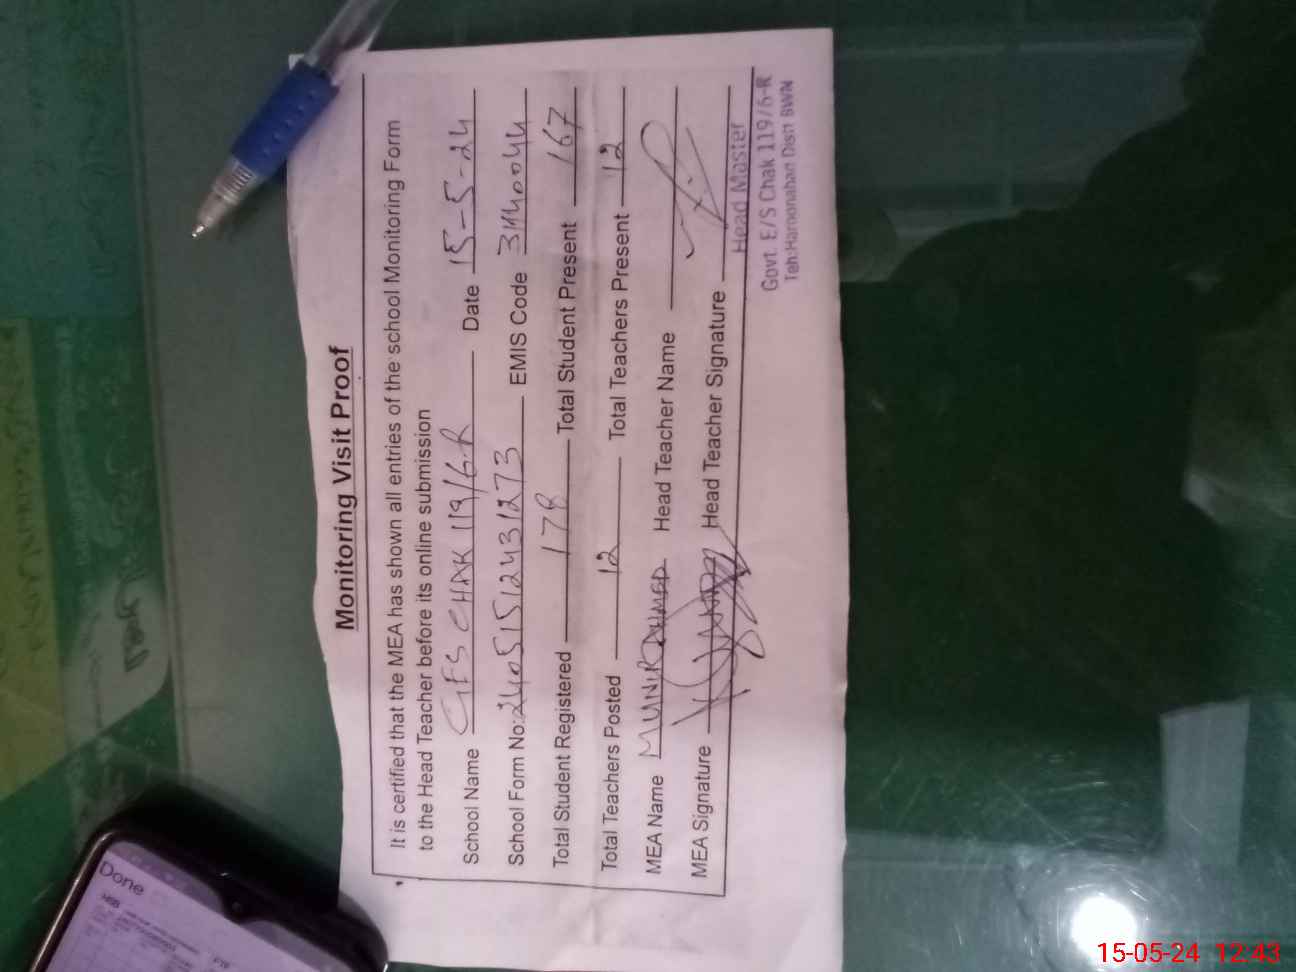 Monitoring Visit Proof
It is certified that the MEA has shown all entries of the school Monitoring Form
to the Head Teacher before its online submission
School Name GES CHAK 119/6.R Date 15-5-24
School Form No: 24051512431273 EMIS Code 31140044
Total Student Registered 178 Total Student Present 167
Total Teachers Posted 12 Total Teachers Present 12
MEA Name MUNIR AHMED Head Teacher Name
MEA Signature Head Teacher Signature
Head Master
Govt. E/S Chak 119/6-R
Teh:Haroonabad Distt BWN
Done
15-05-24 12:43